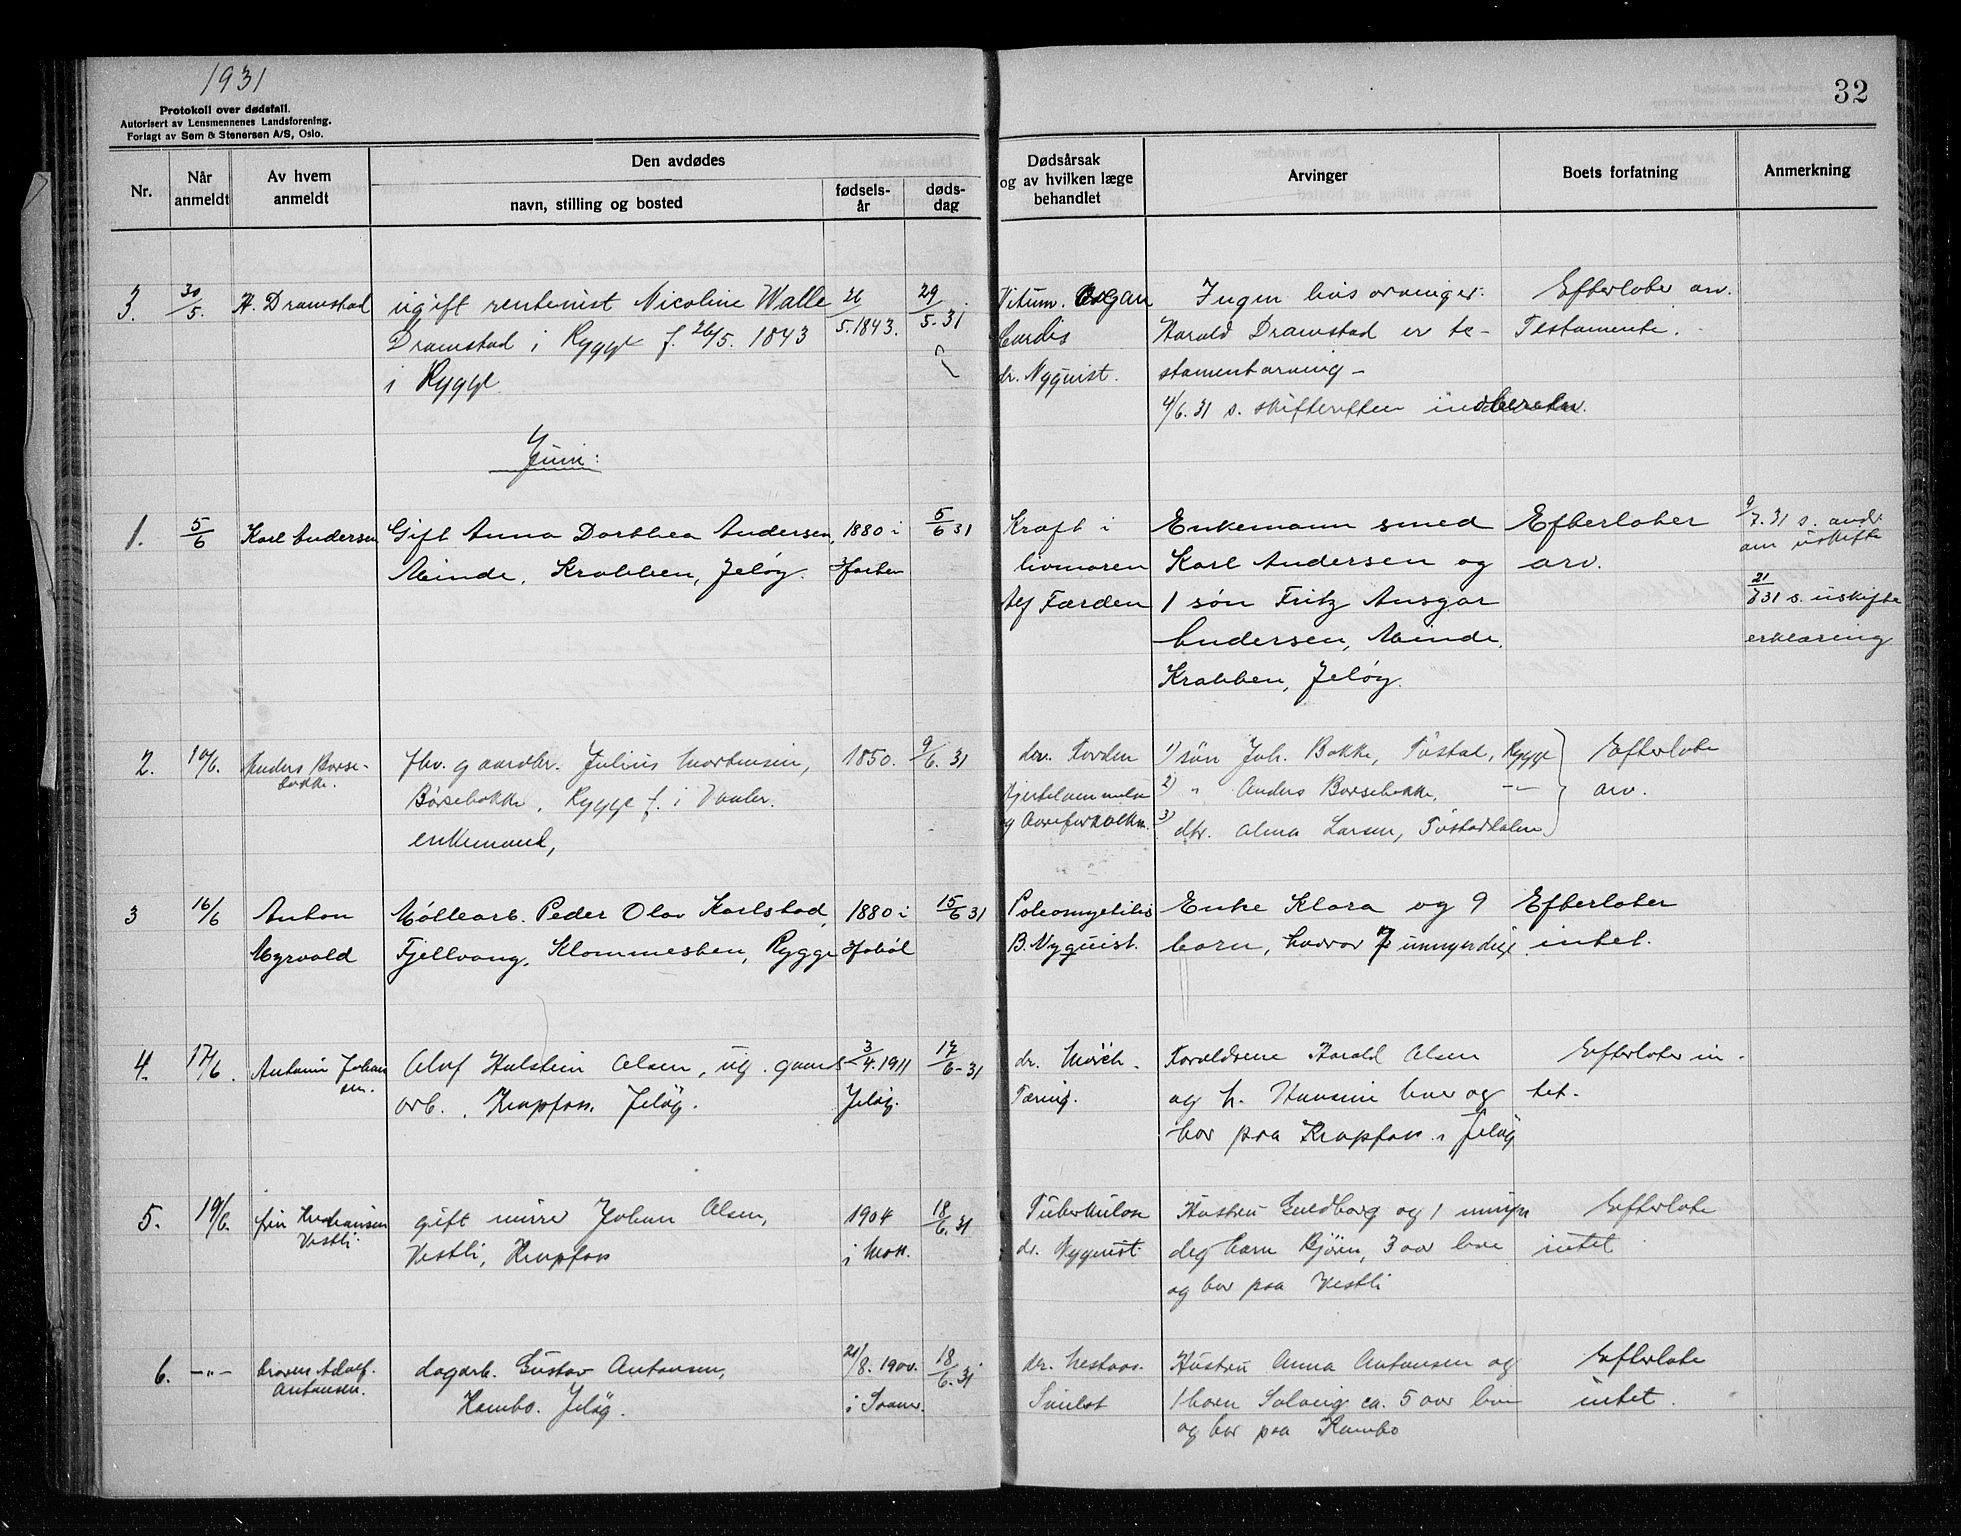 1931
Protokoll over dødsfall.
Autorisert av Lensmennenes Landsforening.
Forlagt av Sem & Stenersen A/S, Oslo.
32
Nr.
Når anmeldt
Av hvem anmeldt
Den avdødes
navn, stilling og bosted
fødsels-
år
døds-
dag
Dødsårsak
og av hvilken læge
behandlet
Arvinger
Boets forfatning
Anmerkning
3. 30/5. H. Dramstad ugift rentenist Nicoline Walle 26/5.1843. 29/5.31
Dramstad i Rygge f. 26/5. 1843
i Rygge
Vitum Organ
Cordis
dr. Nyquist.
Ingen livsarvinger.
Harald Dramstad er te-
stamentarving -
4/6.31 s. skifteretten indberetn.
Efterlater arv.
Testamente.
Juni:
1. 5/6 Karl Andersen Gift Anna Dorthea Andersen, 1880 i 5/6 31
Minde, Krabben, Jeløy.
Kræft i
livmoren
Alf Færden
Enkemann smed
Karl Andersen og
1 søn Fritz Ansgar
Andersen, Minde,
Krabben, Jeløy.
Efterlater
arv.
9/7.31 s. andr.
om uskifte
21/7 31 s. uskifte
erklæring
2. 10/6. Anders Børse-
bakke.
fhv. gaardbr. Julius Mortensen, 1850. 9/6.31
Børsebakke, Rygge f. i Vaaler.
enkemand,
Hjertelammelse
og Aareforkalkn.
1) søn Joh. Bakke, Tøstad, Rygge
2) " Anders Børsebakke, -"-
3) dtr. Alma Larsen, Tøstaddalen
Efterlate
arv.
3 16/6 Anton
Myrvold
Møllearb. Peder Olav Karlstad, 1880 i 15/6 31
Fjellvang, Klommesten, Rygge Hobøl
Poleomyelitis
B. Nyquist.
Enke Klara og 9
barn, hvorav 7 umyndige
Efterlater
intet.
4. 17/6. Antoni Johan
sen.
Olaf Holstein Olsen, ug. gaards 3/4.1911 17/6-31
arb., Krapfos, Jeløy. Jeløy.
dr. Mørch.
Tæring.
Forældrene Harald Olsen
og h. Hansine lever og
bor paa Krapfos i Jeløy
Efterlater in-
tet.
5. 19/6. fru Kristiansen
Vestli.
gift murer Johan Olsen, 1904 18/6.31
Vestli, Krapfos i Mos.
Tuberkulose
dr. Nyquist.
Hustru Guldborg og 1 umyn
dig barn Bjørn, 3 aar leve
og bor paa Vestli
Efterlate
intet
6. -"- Adolf
Antonsen.
dagarb. Gustav Antonsen, 21/8.1900. 18/6.31
Kambo. Jeløy.
Hustru Anna Antonsen og
1 barn Solveig ca. 5 aar leve
og bor paa Kambo
Efterlate
intet.